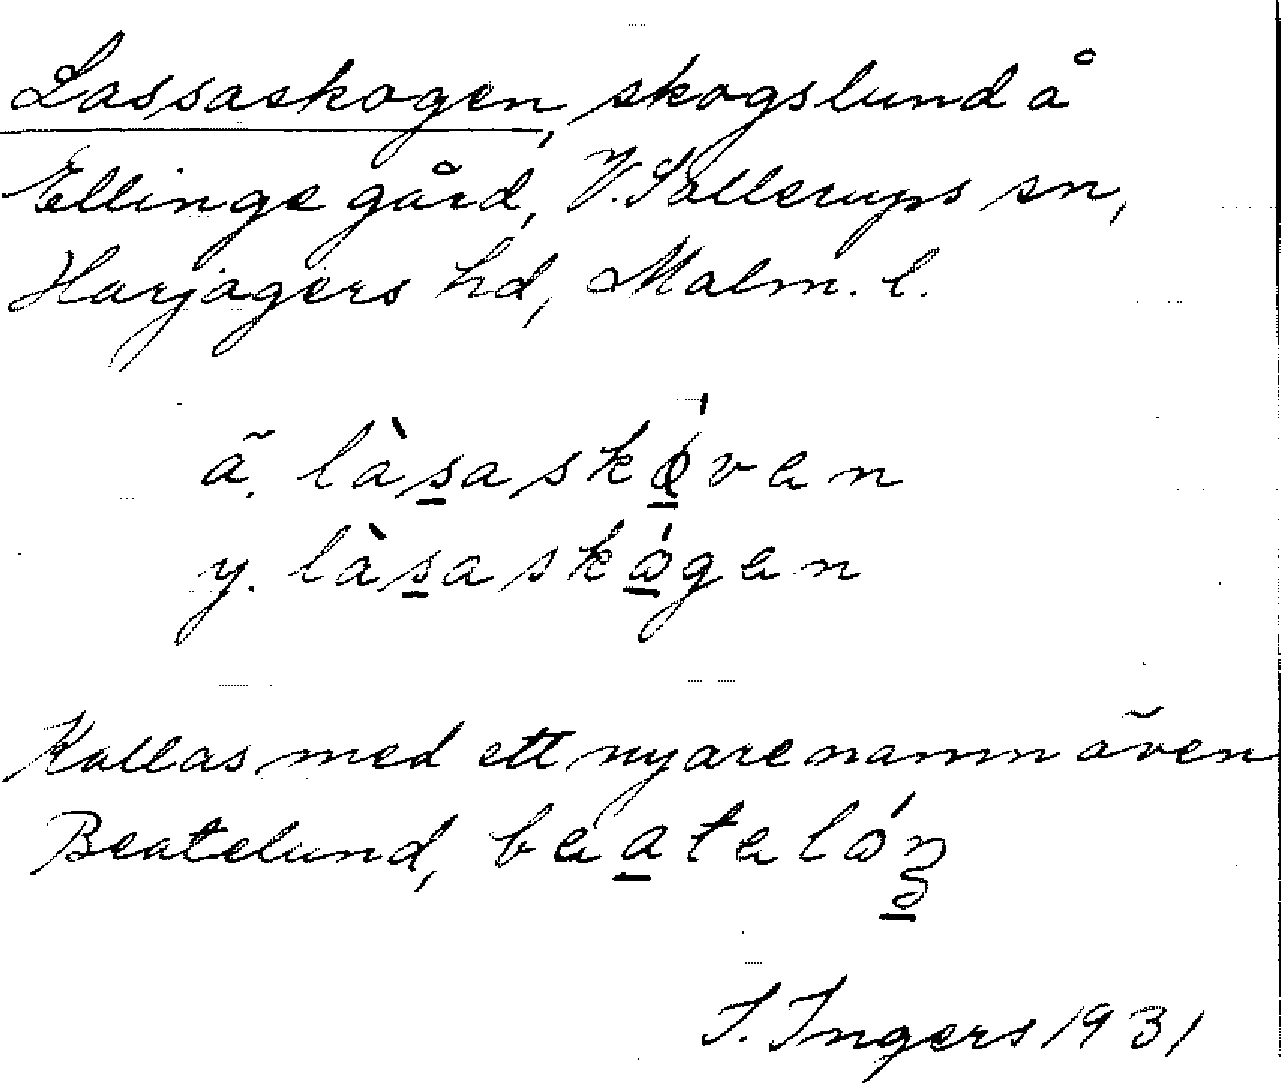 Lassaskogen, skogslund å
Ellinge gård, V. Sallerups sn,
Harjagers hd, Malm. l.
ä. làsaskóvan
y. làsaskógan
Kallas med ett nyare namn även
Beatelund, beatelón
I. Ingers 1931